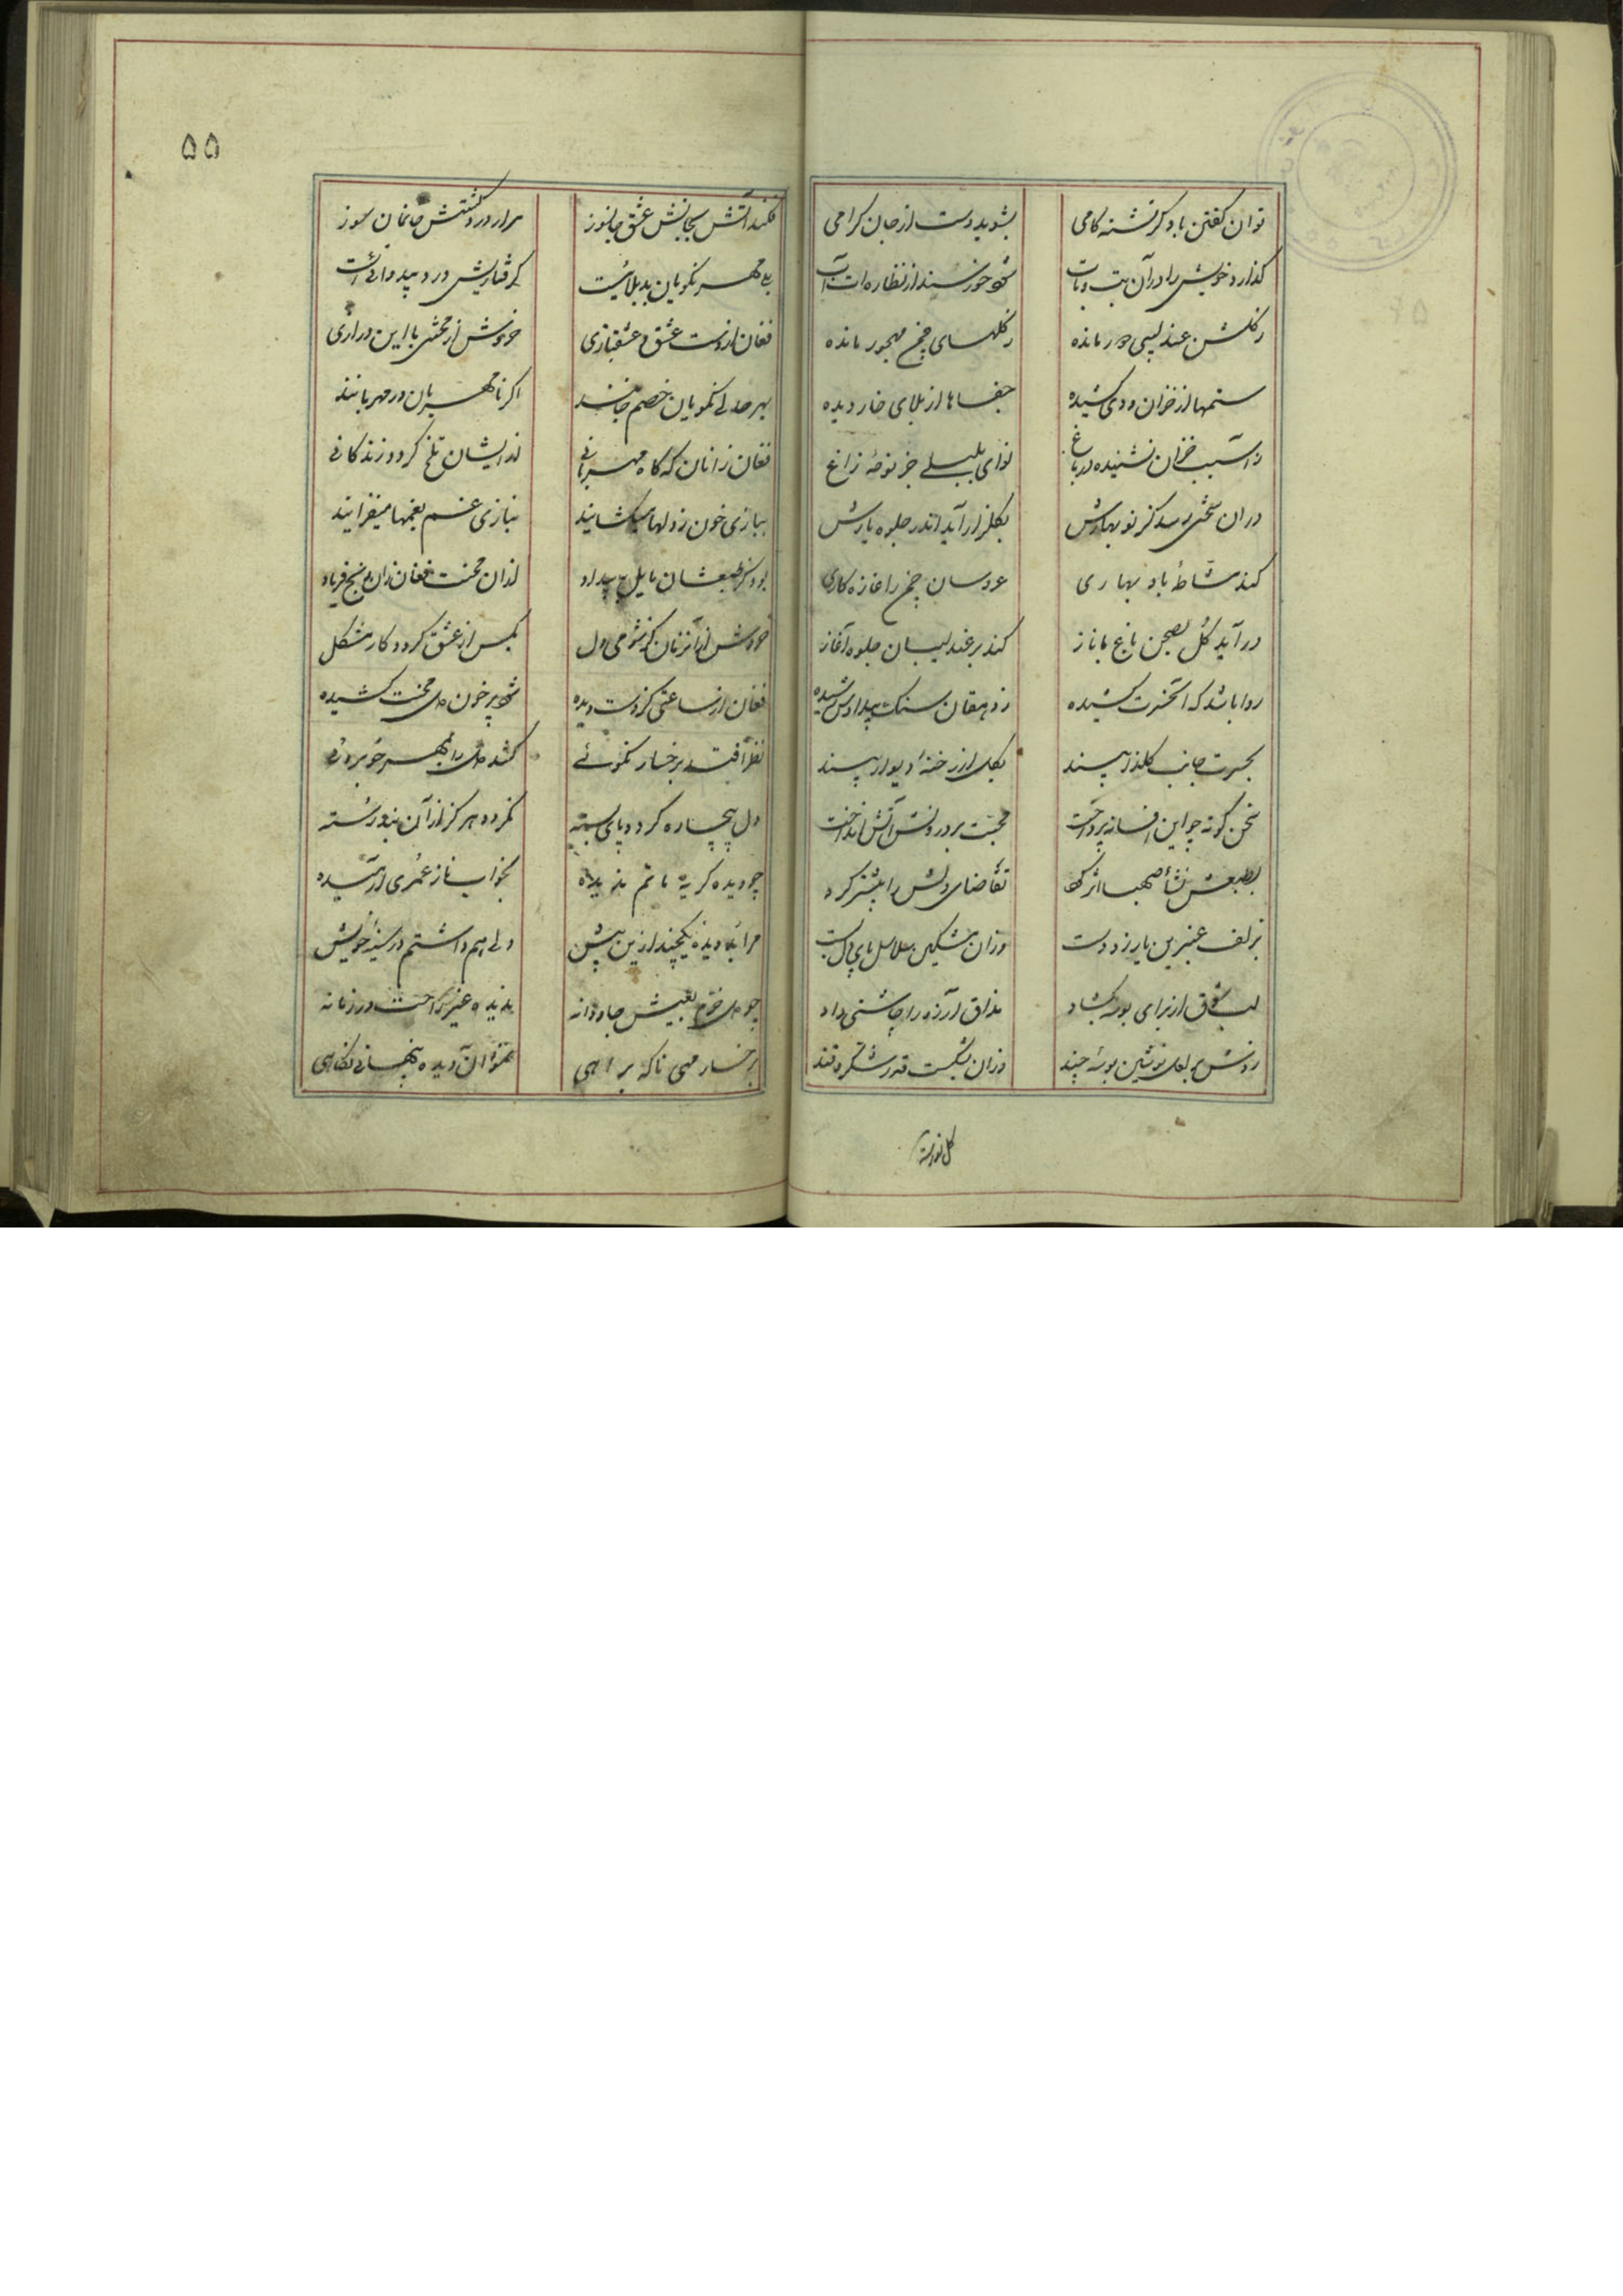 توان گفتن باو کز تشنه کامی بشوید دست از جان گرامی
گذارد خویش را در آن تب و تاب شود خورسند از نظاره آب
ز گلشن عندلیبی دور مانده ز گلهای چمن مهجور مانده
ستمها از خزان و دی کشیده جفاها از بلای خار دیده
ز آسیب خزان نشنیده در باغ نوای بلبلی جز نوحه زاغ
در آن سختی رسد گر نو بهارش بگلزار آید اندر جلوه یارش
کند مشاطه باد بهاری عروسان چمن را غازه کاری
در آید گل بصحن باغ با ناز کند بر عندلیبان جلوه آغاز
روا باشد که آن حسرت کشیده ز دهقان سنگ بیدادش رسیده
بحسرت جانب گلزار بیند بگل از رخنه دیوار بیند
سخن گوته چو این افسانه پرداخت محبت بر درونش آتش انداخت
بطبعش نشأه صهبا اثر کرد تقاضای دلش را بیشتر کرد
بزلف عنبرین یار زد دست وزان مشکین سلاسل پای دل بست
لب شوق از برای بوسه بگشاد مذاق آرزو را چاشنی داد
زدش بر لعل نوشین بوسه چند وزان بشکست قدر شکر و قند
گل نورسته
۵۵
فکند آتش بجانش عشق جانسوز برآرد دردگشتش خانمان سوز
بلی مهر نکویان بد بلائیست گرفتاریش درد بیدوائیست
فغان از دست عشق و عشقبازی خروش از محنتی با این درازی
بهر حالی نکویان خصم جانند اگر نامهربان ور مهربانند
فغان زانان که گاه مهربانی از ایشان تلخ گردد زندگانی
ببازی خون ز دلها میگشایند بنازی غم بغمها میفزایند
بود گر طبعشان مایل به بیداد از آن محنت فغان زان رنج فریاد
خروش از آنزمان کز شومی دل بکس از عشق گردد کار مشکل
فغان از ساعتی کز دست دیده شود پر خون دل محنت کشیده
نظر افتد برخسار نکوئی کشد دل را بمهر خوبروئی
دل بیچاره گردد پای بسته نگردد هرگز از آن بند رسته
چو دیده گریه ماتم ندیده بخواب ناز عمری آرمیده
مرا بد دیده یکچند ازین پیش دلی هم داشتم در سینه خویش
چو دل خرم بعیش جاودانه ندیده غیر راحت در زمانه
برخسار مهی ناگه براهی نمود آن دیده پنهانی نگاهی